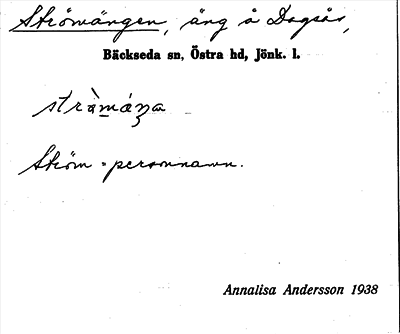 Strömängen, äng å Dagsås,
Bäckseda sn, Östra hd, Jönk. l.
Ström = personnamn.
Annalisa Andersson 1938